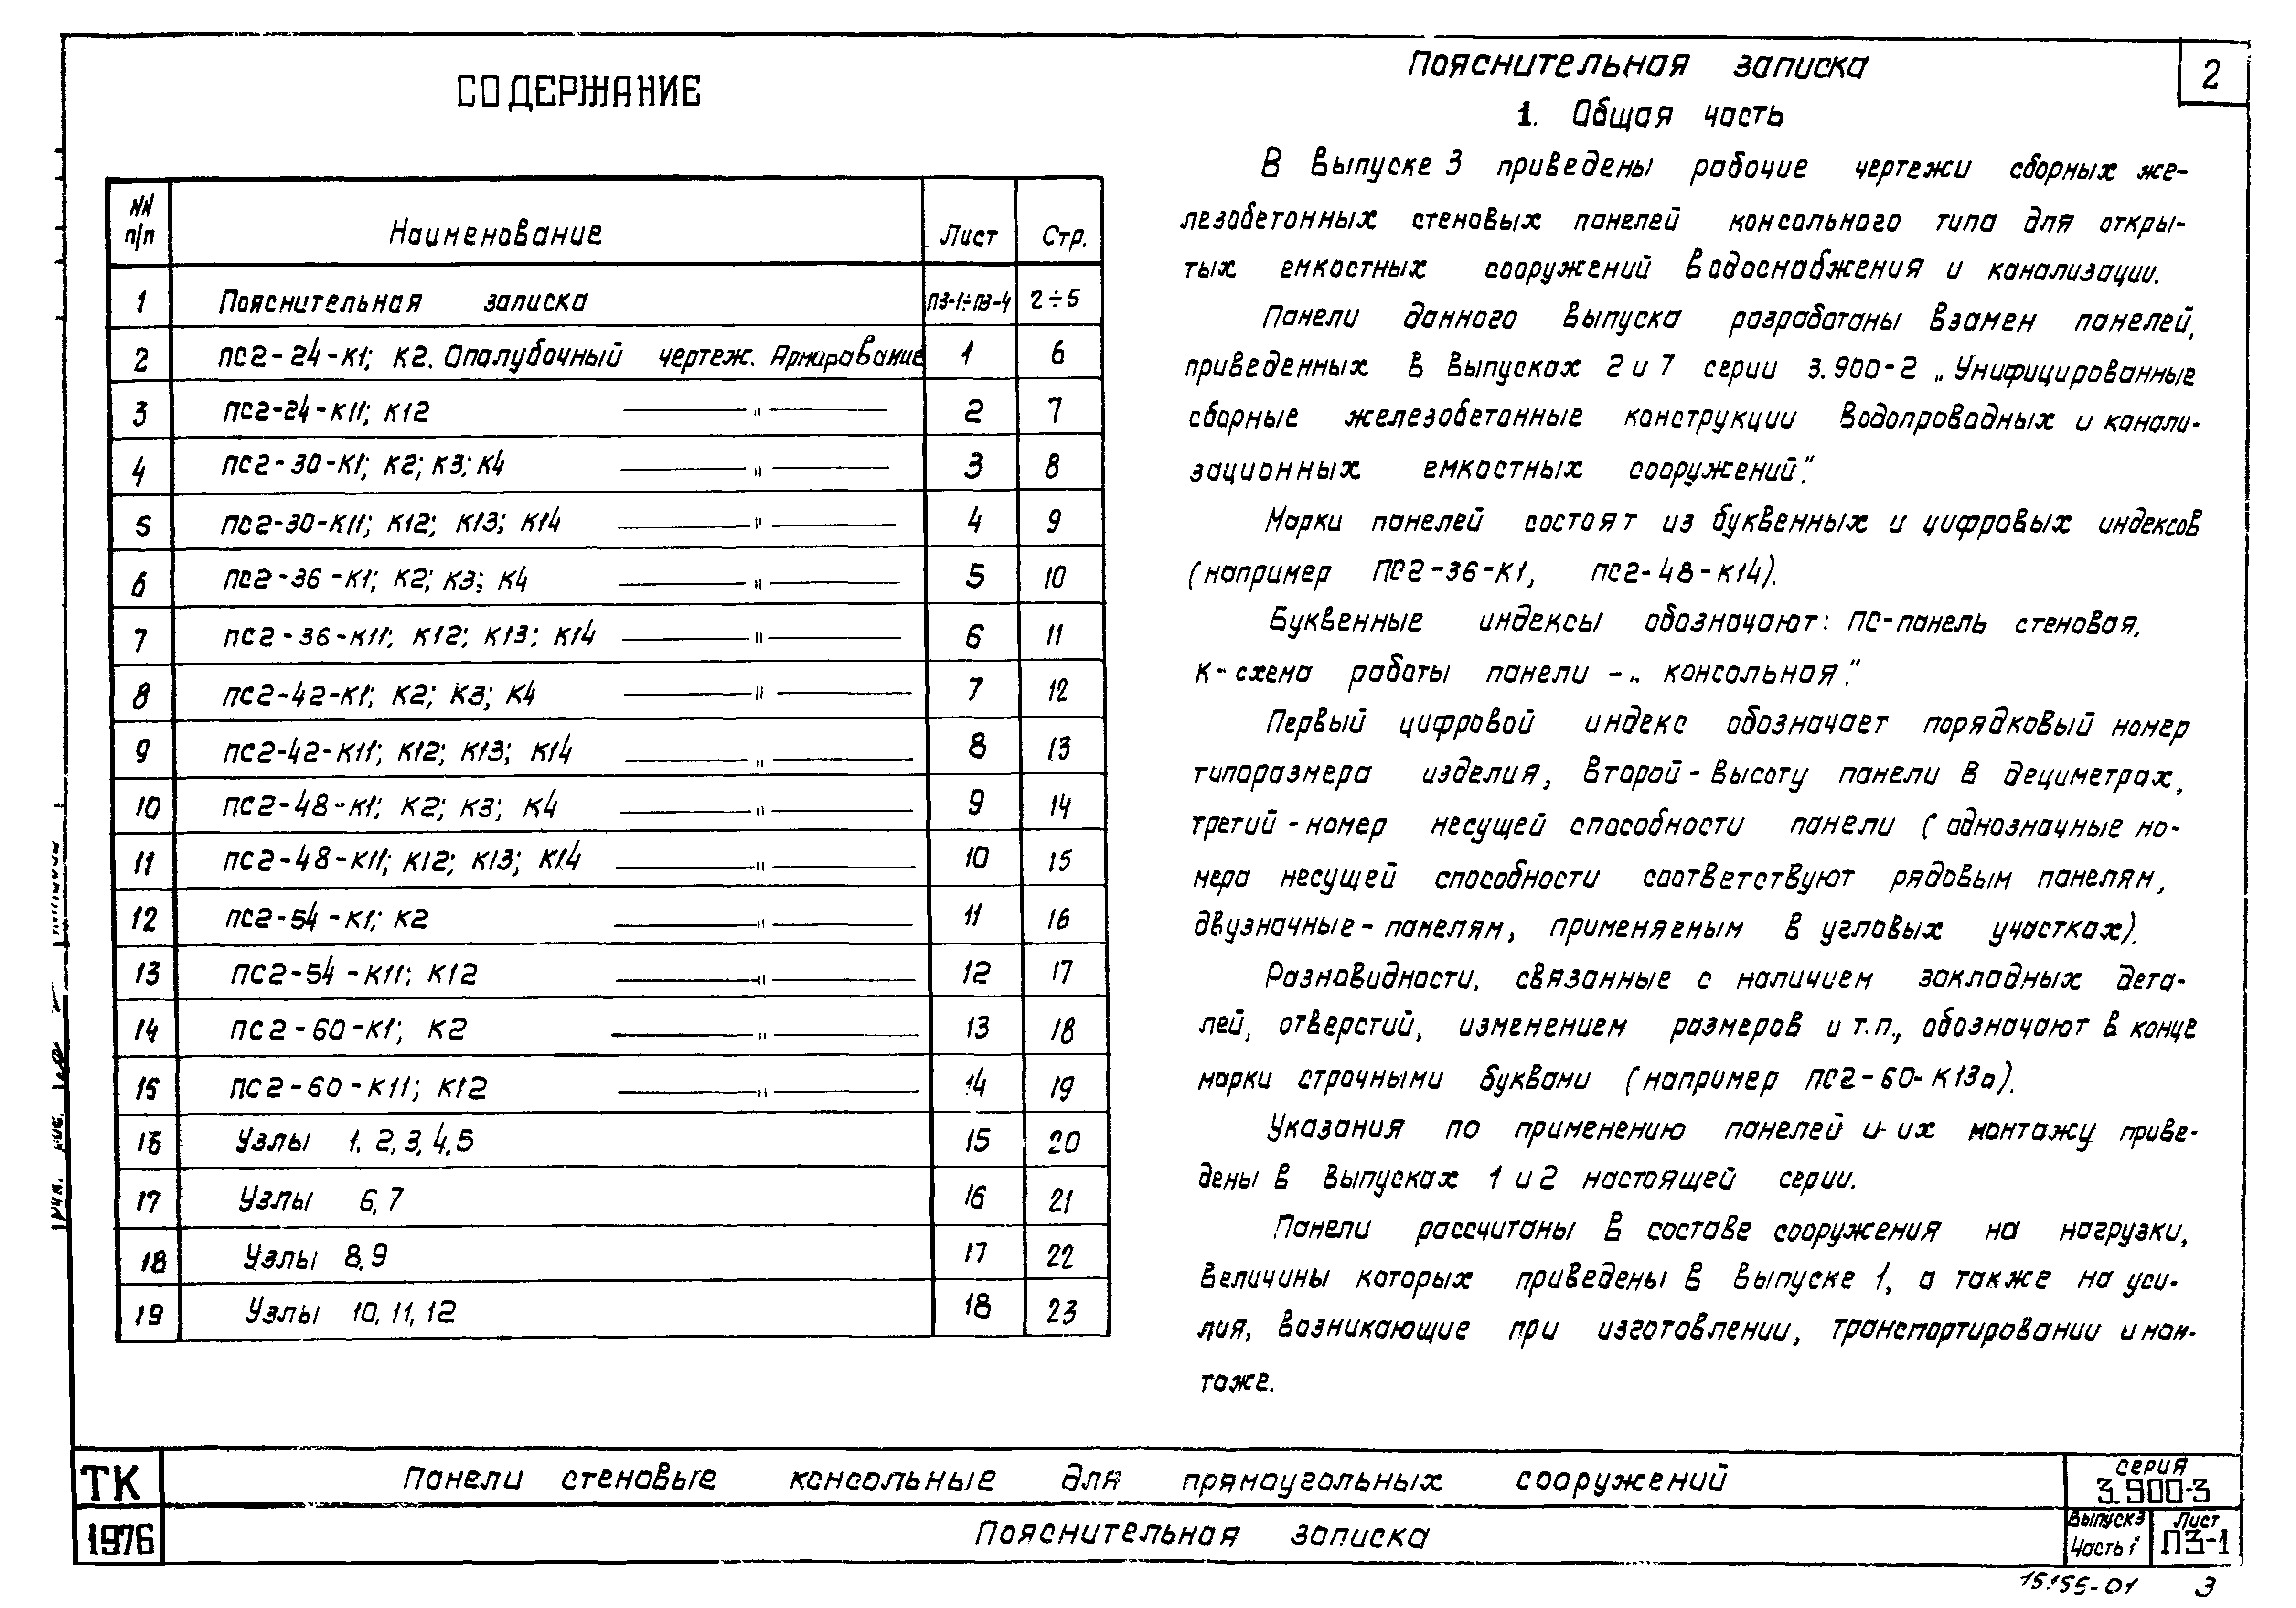 СОДЕРЖАНИЕ
NN п/п Наименование Лист Стр.
1 Пояснительная записка ПЗ-1÷ПЗ-4 2÷5
2 ПС2-24-К1; К2. Опалубочный чертеж. Армирование 1 6
3 ПС2-24-К11; К12 — " — 2 7
4 ПС2-30-К1; К2; К3; К4 — " — 3 8
5 ПС2-30-К11; К12; К13; К14 — " — 4 9
6 ПС2-36-К1; К2; К3; К4 — " — 5 10
7 ПС2-36-К11; К12; К13; К14 — " — 6 11
8 ПС2-42-К1; К2; К3; К4 — " — 7 12
9 ПС2-42-К11; К12; К13; К14 — " — 8 13
10 ПС2-48-К1; К2; К3; К4 — " — 9 14
11 ПС2-48-К11; К12; К13; К14 — " — 10 15
12 ПС2-54-К1; К2 — " — 11 16
13 ПС2-54-К11; К12 — " — 12 17
14 ПС2-60-К1; К2 — " — 13 18
15 ПС2-60-К11; К12 — " — 14 19
16 Узлы 1, 2, 3, 4, 5 15 20
17 Узлы 6, 7 16 21
18 Узлы 8, 9 17 22
19 Узлы 10, 11, 12 18 23
2
Пояснительная записка
1. Общая часть
В выпуске 3 приведены рабочие чертежи сборных же-
лезобетонных стеновых панелей консольного типа для откры-
тых емкостных сооружений водоснабжения и канализации.
Панели данного выпуска разработаны взамен панелей,
приведенных в выпусках 2 и 7 серии 3.900-2 „Унифицированные
сборные железобетонные конструкции водопроводных и канали-
зационных емкостных сооружений".
Марки панелей состоят из буквенных и цифровых индексов
(например ПС2-36-К1, ПС2-48-К14).
Буквенные индексы обозначают: ПС-панель стеновая,
К-схема работы панели - „консольная".
Первый цифровой индекс обозначает порядковый номер
типоразмера изделия, второй - высоту панели в дециметрах,
третий - номер несущей способности панели (однозначные но-
мера несущей способности соответствуют рядовым панелям,
двузначные - панелям, применяемым в угловых участках).
Разновидности, связанные с наличием закладных дета-
лей, отверстий, изменением размеров и т.п., обозначают в конце
марки строчными буквами (например ПС2-60-К13а).
Указания по применению панелей и их монтажу приве-
дены в выпусках 1 и 2 настоящей серии.
Панели рассчитаны в составе сооружения на нагрузки,
величины которых приведены в выпуске 1, а также на уси-
лия, возникающие при изготовлении, транспортировании и мон-
таже.
ТК Панели стеновые консольные для прямоугольных сооружений серия 3.900-3
1976 Пояснительная записка Выпуск 3 Часть 1 Лист ПЗ-1
15155-01 3